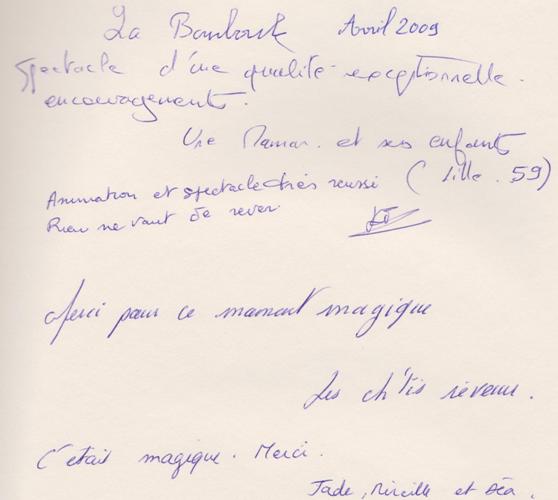 La Avril 2009
Spectacle d'une qualité exceptionnelle.
encouragements.
Une Maman. et ses enfants
(Lille. 59)
Animation et spectacle très réussi
Rien ne vaut de rever
Merci pour ce moment magique
Les ch'tis revenu.
C'etait magique. Merci.
Jade, Mireille et Léa.